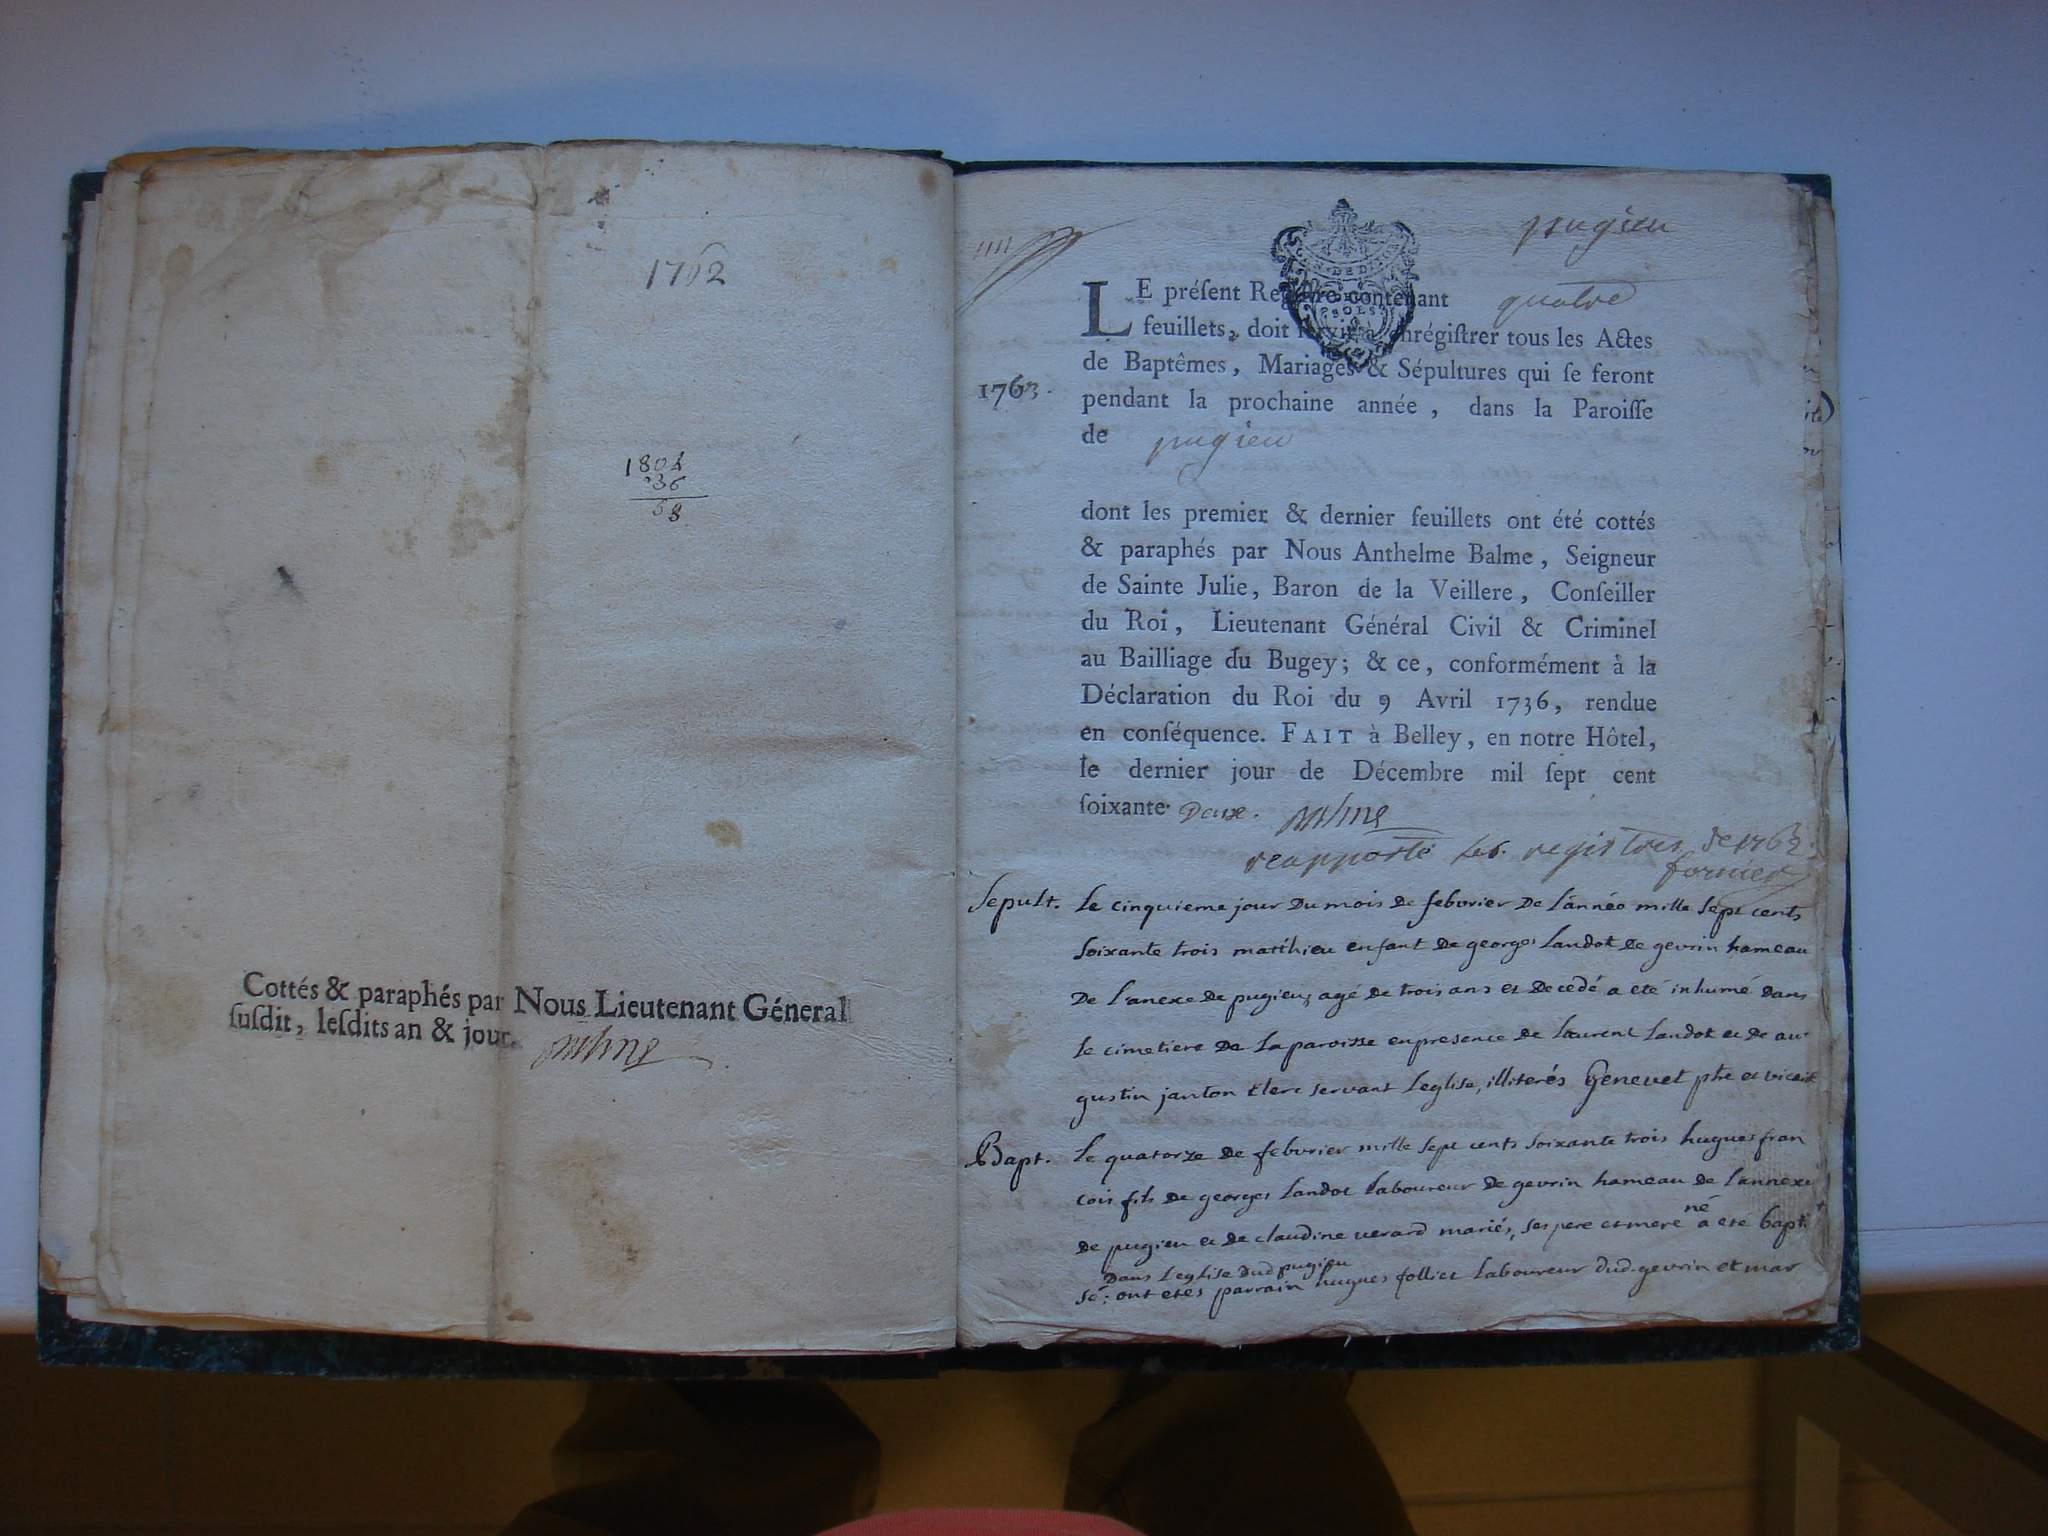 1762
1804
36
68
Cottés & paraphés par Nous Lieutenant Géneral
ſuſdit, leſdits an & jour.
pugieu
LE préſent Regiſtre contenant quatre
feuillets, doit ſervir à enrégiſtrer tous les Actes
de Baptêmes, Mariages & Sépultures qui ſe feront
1763.
pendant la prochaine année, dans la Paroiſſe
de pugieu
dont les premier & dernier feuillets ont été cottés
& paraphés par Nous Anthelme Balme, Seigneur
de Sainte Julie, Baron de la Veillere, Conſeiller
du Roi, Lieutenant Général Civil & Criminel
au Bailliage du Bugey; & ce, conformément à la
Déclaration du Roi du 9 Avril 1736, rendue
en conſéquence. FAIT à Belley, en notre Hôtel,
le dernier jour de Décembre mil ſept cent
ſoixante Deux. Balme
reapporté les registres de 1763.
Sepult. Le cinquieme jour Du mois De febvrier De l'année mille sept cents
soixante trois matthieu enfant De georges Landot De gevrin hameau
De l'anexe De pugieu, agé de trois ans et Decedé a eté inhumé Dans
le cimetiere De la paroisse en presence de Laurent Landot et de au
gustin janton Clerc servant l'eglise, illiterés Genevet ptre et vicaire
Bapt. Le quatorze De febvrier mille sept cents soixante trois hugues fran
cois fils de georges Landot Laboureur De gevrin hameau De l'annexe
de pugieu et de claudine verard mariés, ses pere et mere né a eté bapti
Dans l'eglise Dud pugieu
sé: ont etés parrain hugues folliet Laboureur dud. gevrin et mar